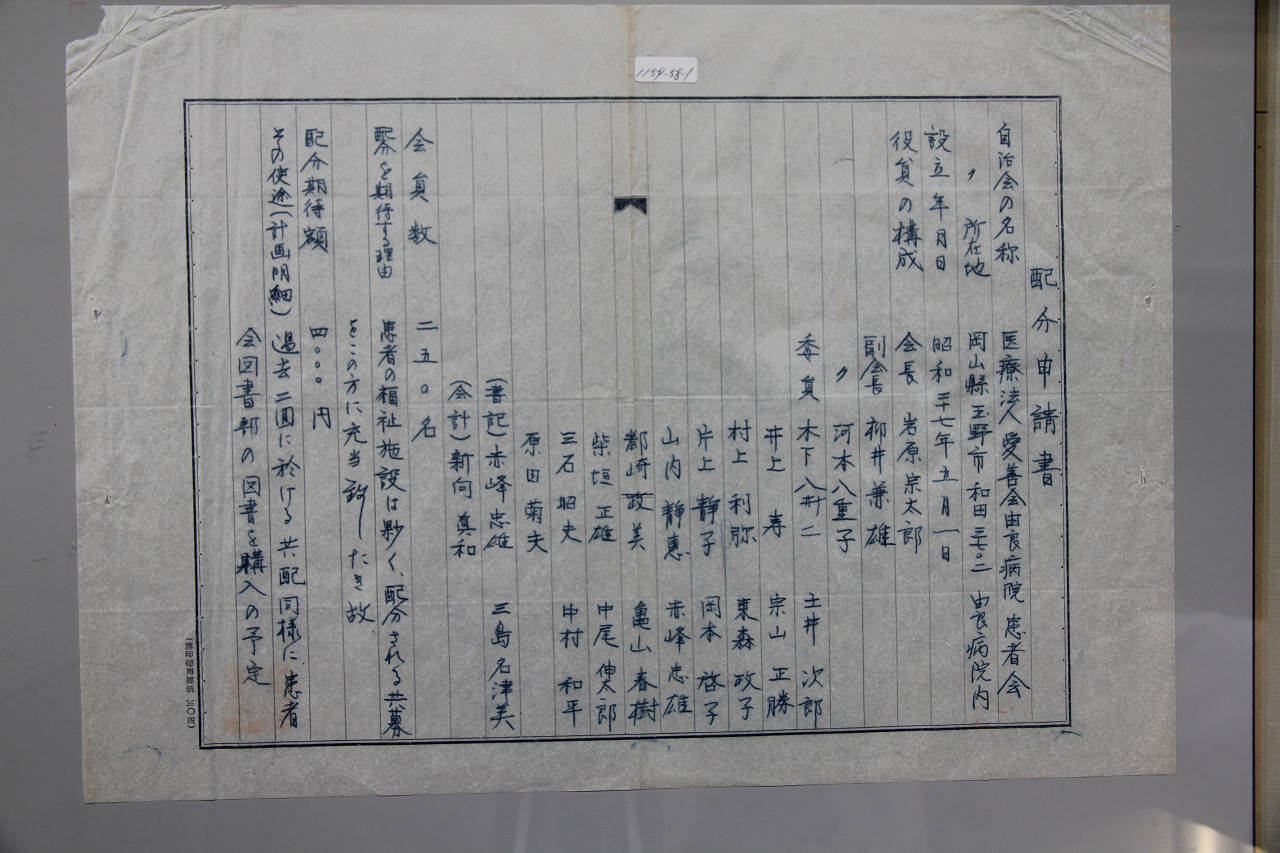 1154-58-1
配分申請書
自治会の名称 医療法人愛善会由良病院患者会
〃 所在地 岡山縣玉野市和田三七〇二 由良病院内
設立年月日 昭和三十七年五月一日
役員の構成 会長 岩原宗太郎
副会長 柳井兼雄
〃 河本八重子
委員 木下八卄二 土井次郎
井上寿 宗山正勝
村上利弥 東森政子
片上静子 岡本啓子
山内静恵 赤峰忠雄
都崎政美 亀山春樹
柴垣正雄 中尾伸太郎
三石昭夫 中村和平
原田菊夫
(書記)赤峰忠雄 三島名津美
(会計)新向真和
会員数 二五〇名
配分を期待する理由 患者の福祉施設は尠く、配分される共募
をこの方に充当致したき故
配分期待額 四〇〇〇円
その使途(計画明細) 過去二回に於ける共配同様に、患者
会図書部の図書を購入の予定